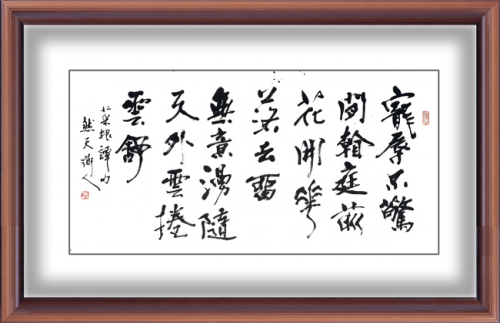 寵辱不驚
閒看庭前
花開花
落去留
無意漫隨
天外雲捲
雲舒
菜根譚句